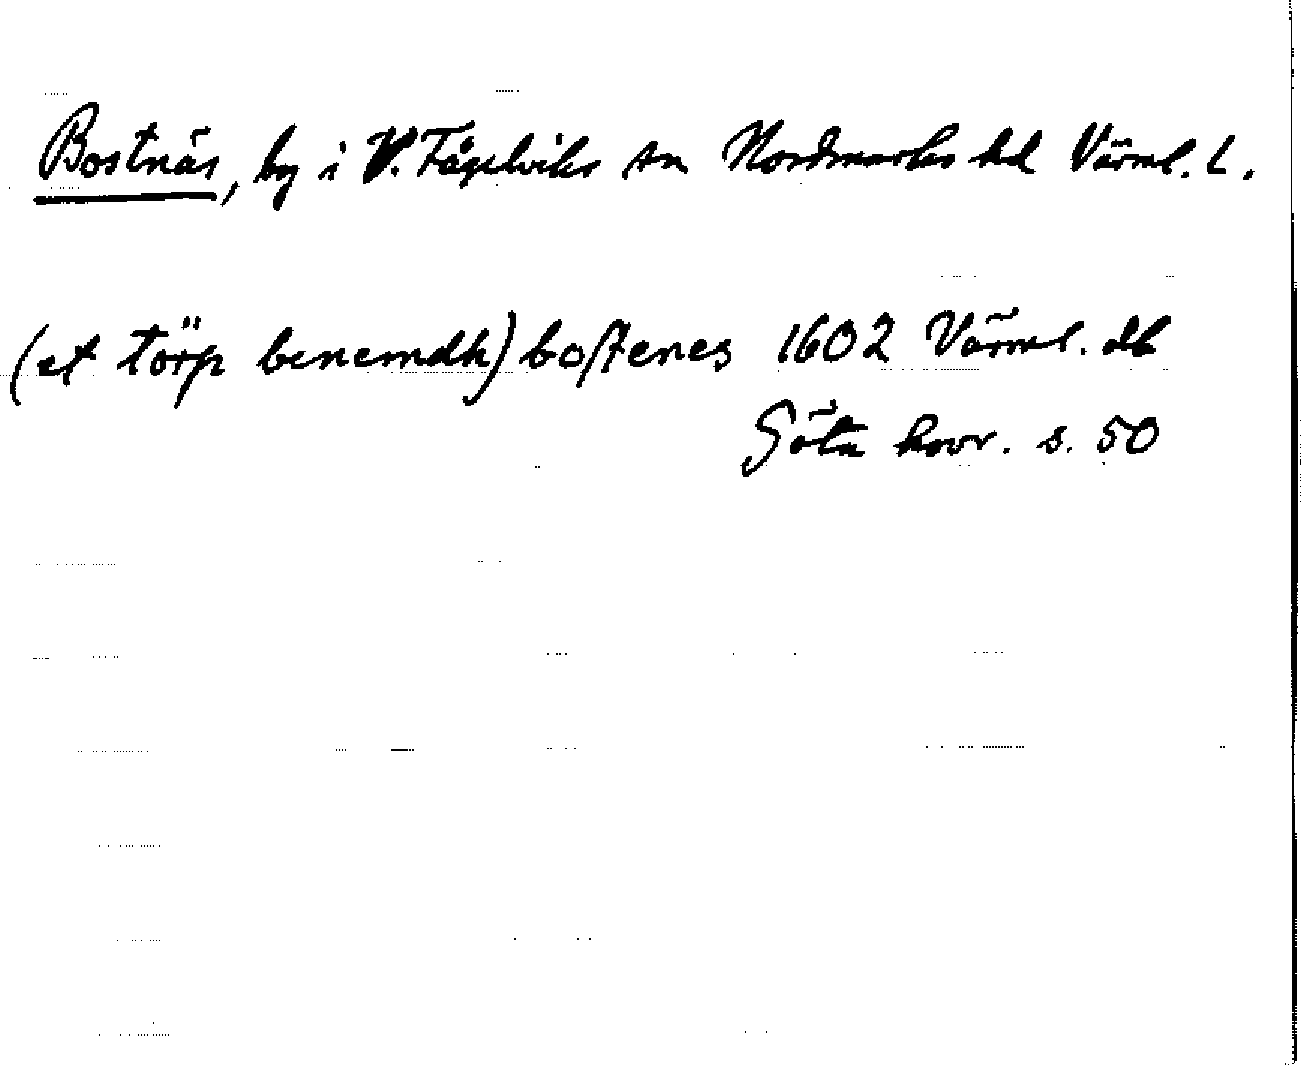 Bostnäs, by i V. Fågelviks sn Nordmarks hd Värml. L.
(et törp benemdh) bostenes 1602 Värml. db
Göta hovr. s. 50